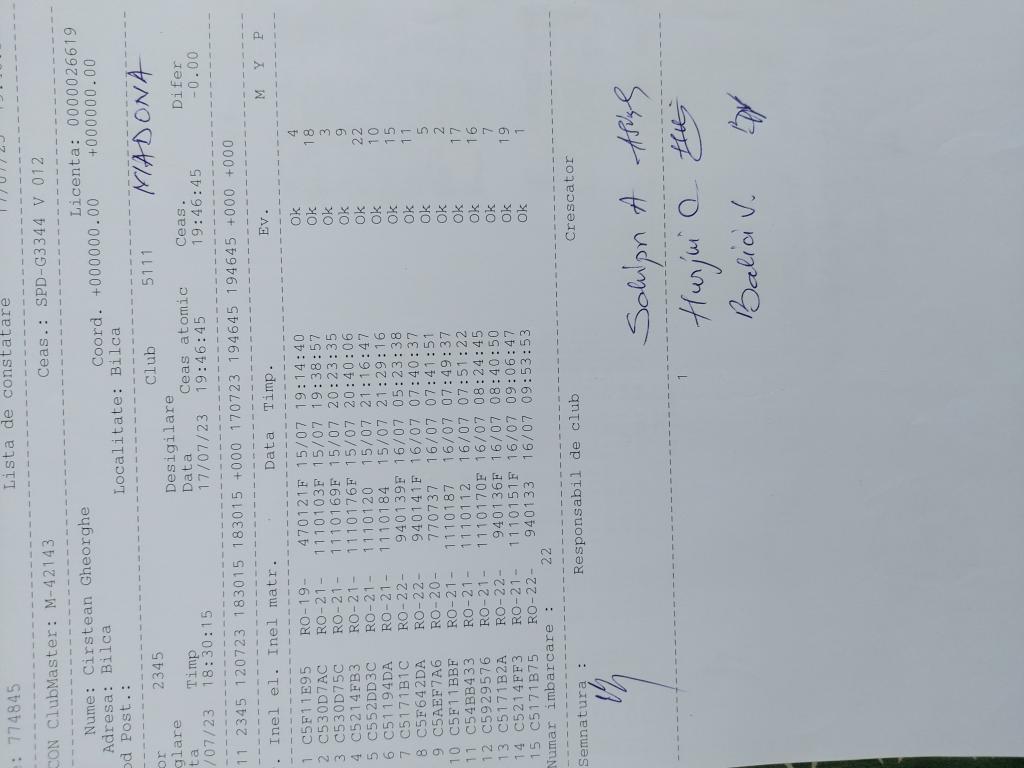 : 774845 Lista de constatare
CON ClubMaster: M-42143 Ceas.: SPD-G3344 V 012
Nume: Cirstean Gheorghe Licenta: 0000026619
Adresa: Bilca Coord. +000000.00 +000000.00
od Post.: Localitate: Bilca
or 2345 Club 5111 MADONA
glare Desigilare
ta Timp Data Ceas atomic Ceas. Difer
/07/23 18:30:15 17/07/23 19:46:45 19:46:45 -0.00
11 2345 120723 183015 183015 +000 170723 194645 194645 +000 +000
. Inel el. Inel matr. Data Timp. Ev. M Y P
1 C5F11E95 RO-19- 470121F 15/07 19:14:40 Ok 4
2 C530D7AC RO-21- 1110103F 15/07 19:38:57 Ok 18
3 C530D75C RO-21- 1110169F 15/07 20:23:35 Ok 3
4 C5214FB3 RO-21- 1110176F 15/07 20:40:06 Ok 9
5 C552DD3C RO-21- 1110120 15/07 21:16:47 Ok 22
6 C51194DA RO-21- 1110184 15/07 21:29:16 Ok 10
7 C5171B1C RO-22- 940139F 16/07 05:23:38 Ok 15
8 C5F642DA RO-22- 940141F 16/07 07:40:37 Ok 11
9 C5AEF7A6 RO-20- 770737 16/07 07:41:51 Ok 5
10 C5F11BBF RO-21- 1110187 16/07 07:49:37 Ok 2
11 C54BB433 RO-21- 1110112 16/07 07:51:22 Ok 17
12 C5929576 RO-21- 1110170F 16/07 08:24:45 Ok 16
13 C5171B2A RO-22- 940136F 16/07 08:40:50 Ok 7
14 C5214FF3 RO-21- 1110151F 16/07 09:06:47 Ok 19
15 C5171B75 RO-22- 940133 16/07 09:53:53 Ok 1
Numar imbarcare : 22
Semnatura : Responsabil de club Crescator
A
C
Balici V.
1